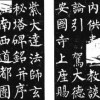 內供奉三教談
論引駕大德
安國寺上座賜
紫大達法師玄
秘塔碑銘并序